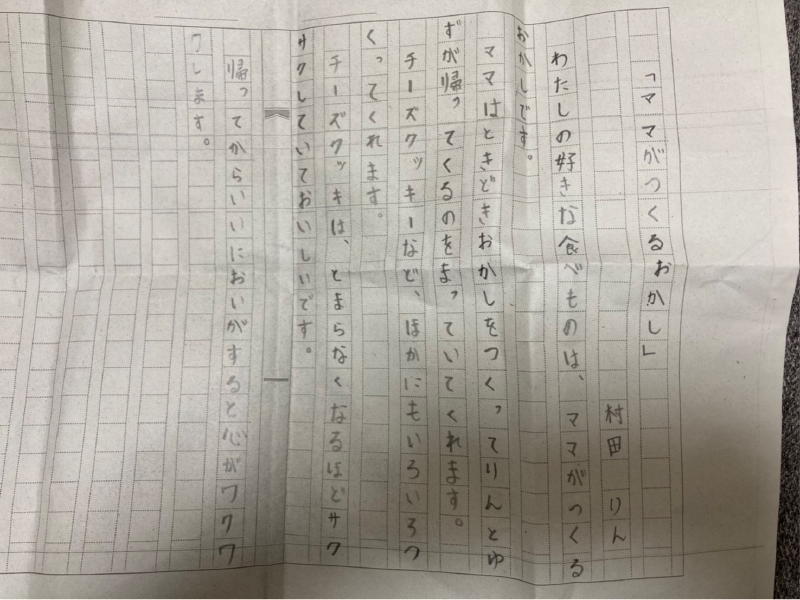 「ママがつくるおかし」
村田 りん
わたしの好きな食べものは、ママがつくる
おかしです。
ママはときどきおかしをつくってりんとゆ
ずが帰ってくるのをまっていてくれます。
チーズクッキーなど、ほかにもいろいろつ
くってくれます。
チーズクッキは、とまらなくなるほどサク
サクしていておいしいです。
帰ってからいいにおいがすると心がワクワ
クします。